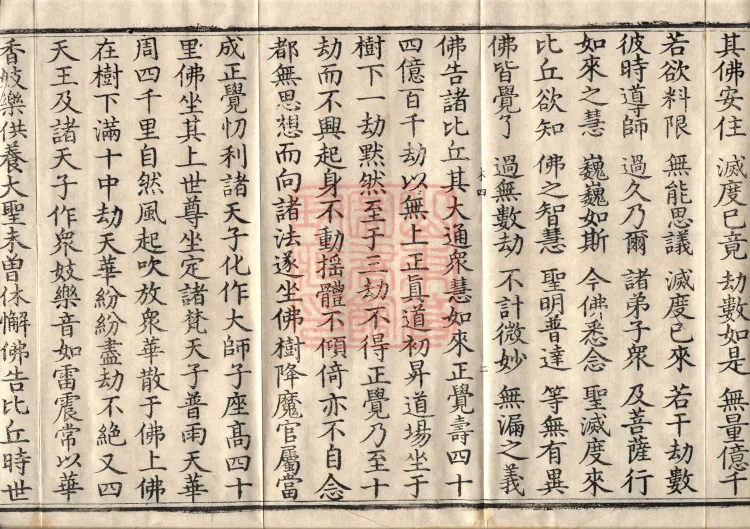 其佛安住　滅度已竟　劫數如是　無量億千
若欲料限　無能思議　滅度已來　若干劫數
彼時導師　過久乃爾　諸弟子衆　及菩薩行
如來之慧　巍巍如斯　今佛悉念　聖滅度來
比丘欲知　佛之智慧　聖明普達　等無有異
佛皆覺了　過無數劫　不計微妙　無漏之義
佛告諸比丘其大通衆慧如來正覺壽四十
四億百千劫以無上正眞道初昇道場坐于
樹下一劫默然至于三劫不得正覺乃至十
劫而不興起身不動揺體不傾倚亦不自念
都無思想而向諸法遂坐佛樹降魔官屬當
成正覺忉利諸天子化作大師子座高四十
里佛坐其上世尊坐定諸梵天子普雨天華
周四千里自然風起吹放衆華散于佛上佛
在樹下滿十中劫天華紛紛盡劫不絶又四
天王及諸天子作衆妓樂音如雷震常以華
香妓樂供養大聖未曾休懈佛告比丘時世